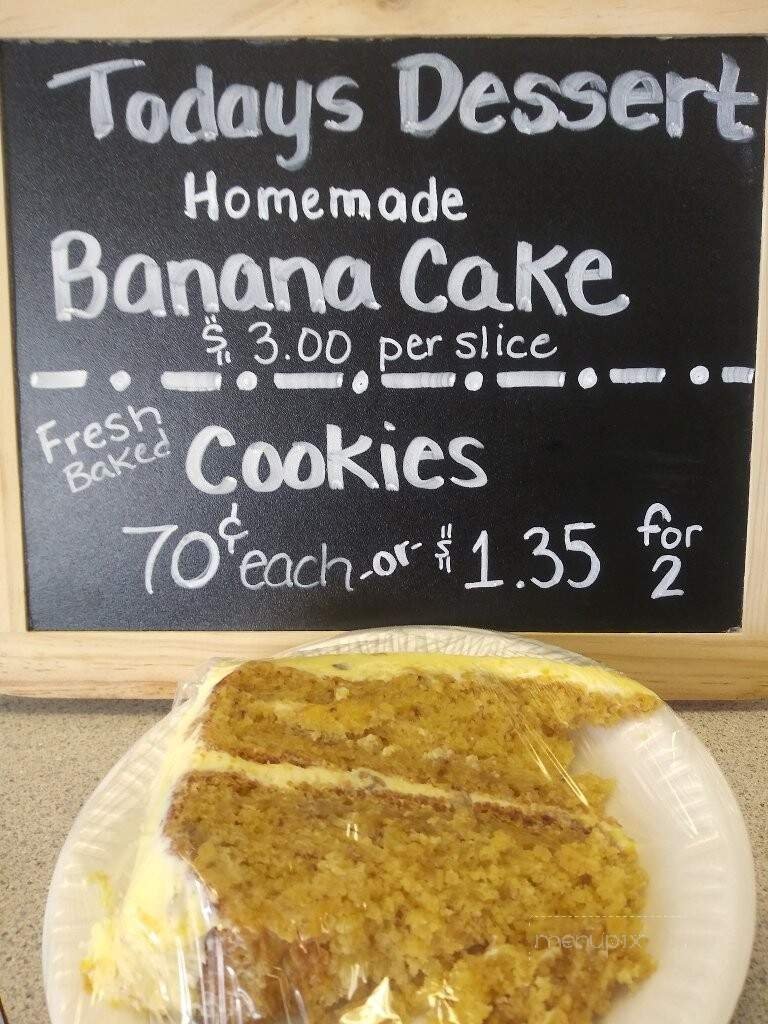 Todays Dessert
Homemade
Banana Cake
$ 3.00 per slice
Fresh Baked Cookies
70¢ each -or- $1.35 for 2
menupix